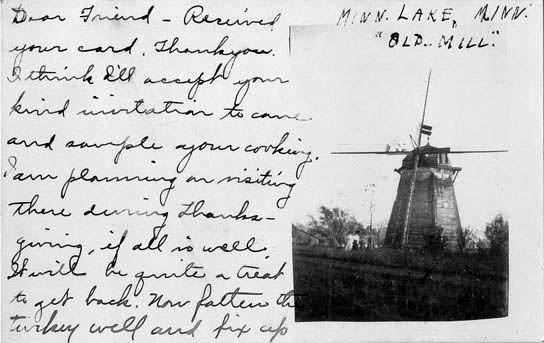 Dear Friend - Received
your card. Thankyou.
I think I'll accept your
kind invitation to come
and sample your cooking.
I am planning on visiting
there during Thanks-
giving, if all is well.
It will be quite a treat
to get back. Now fatten the
turkey well and fix up
MINN. LAKE, MINN.
"OLD-MILL".